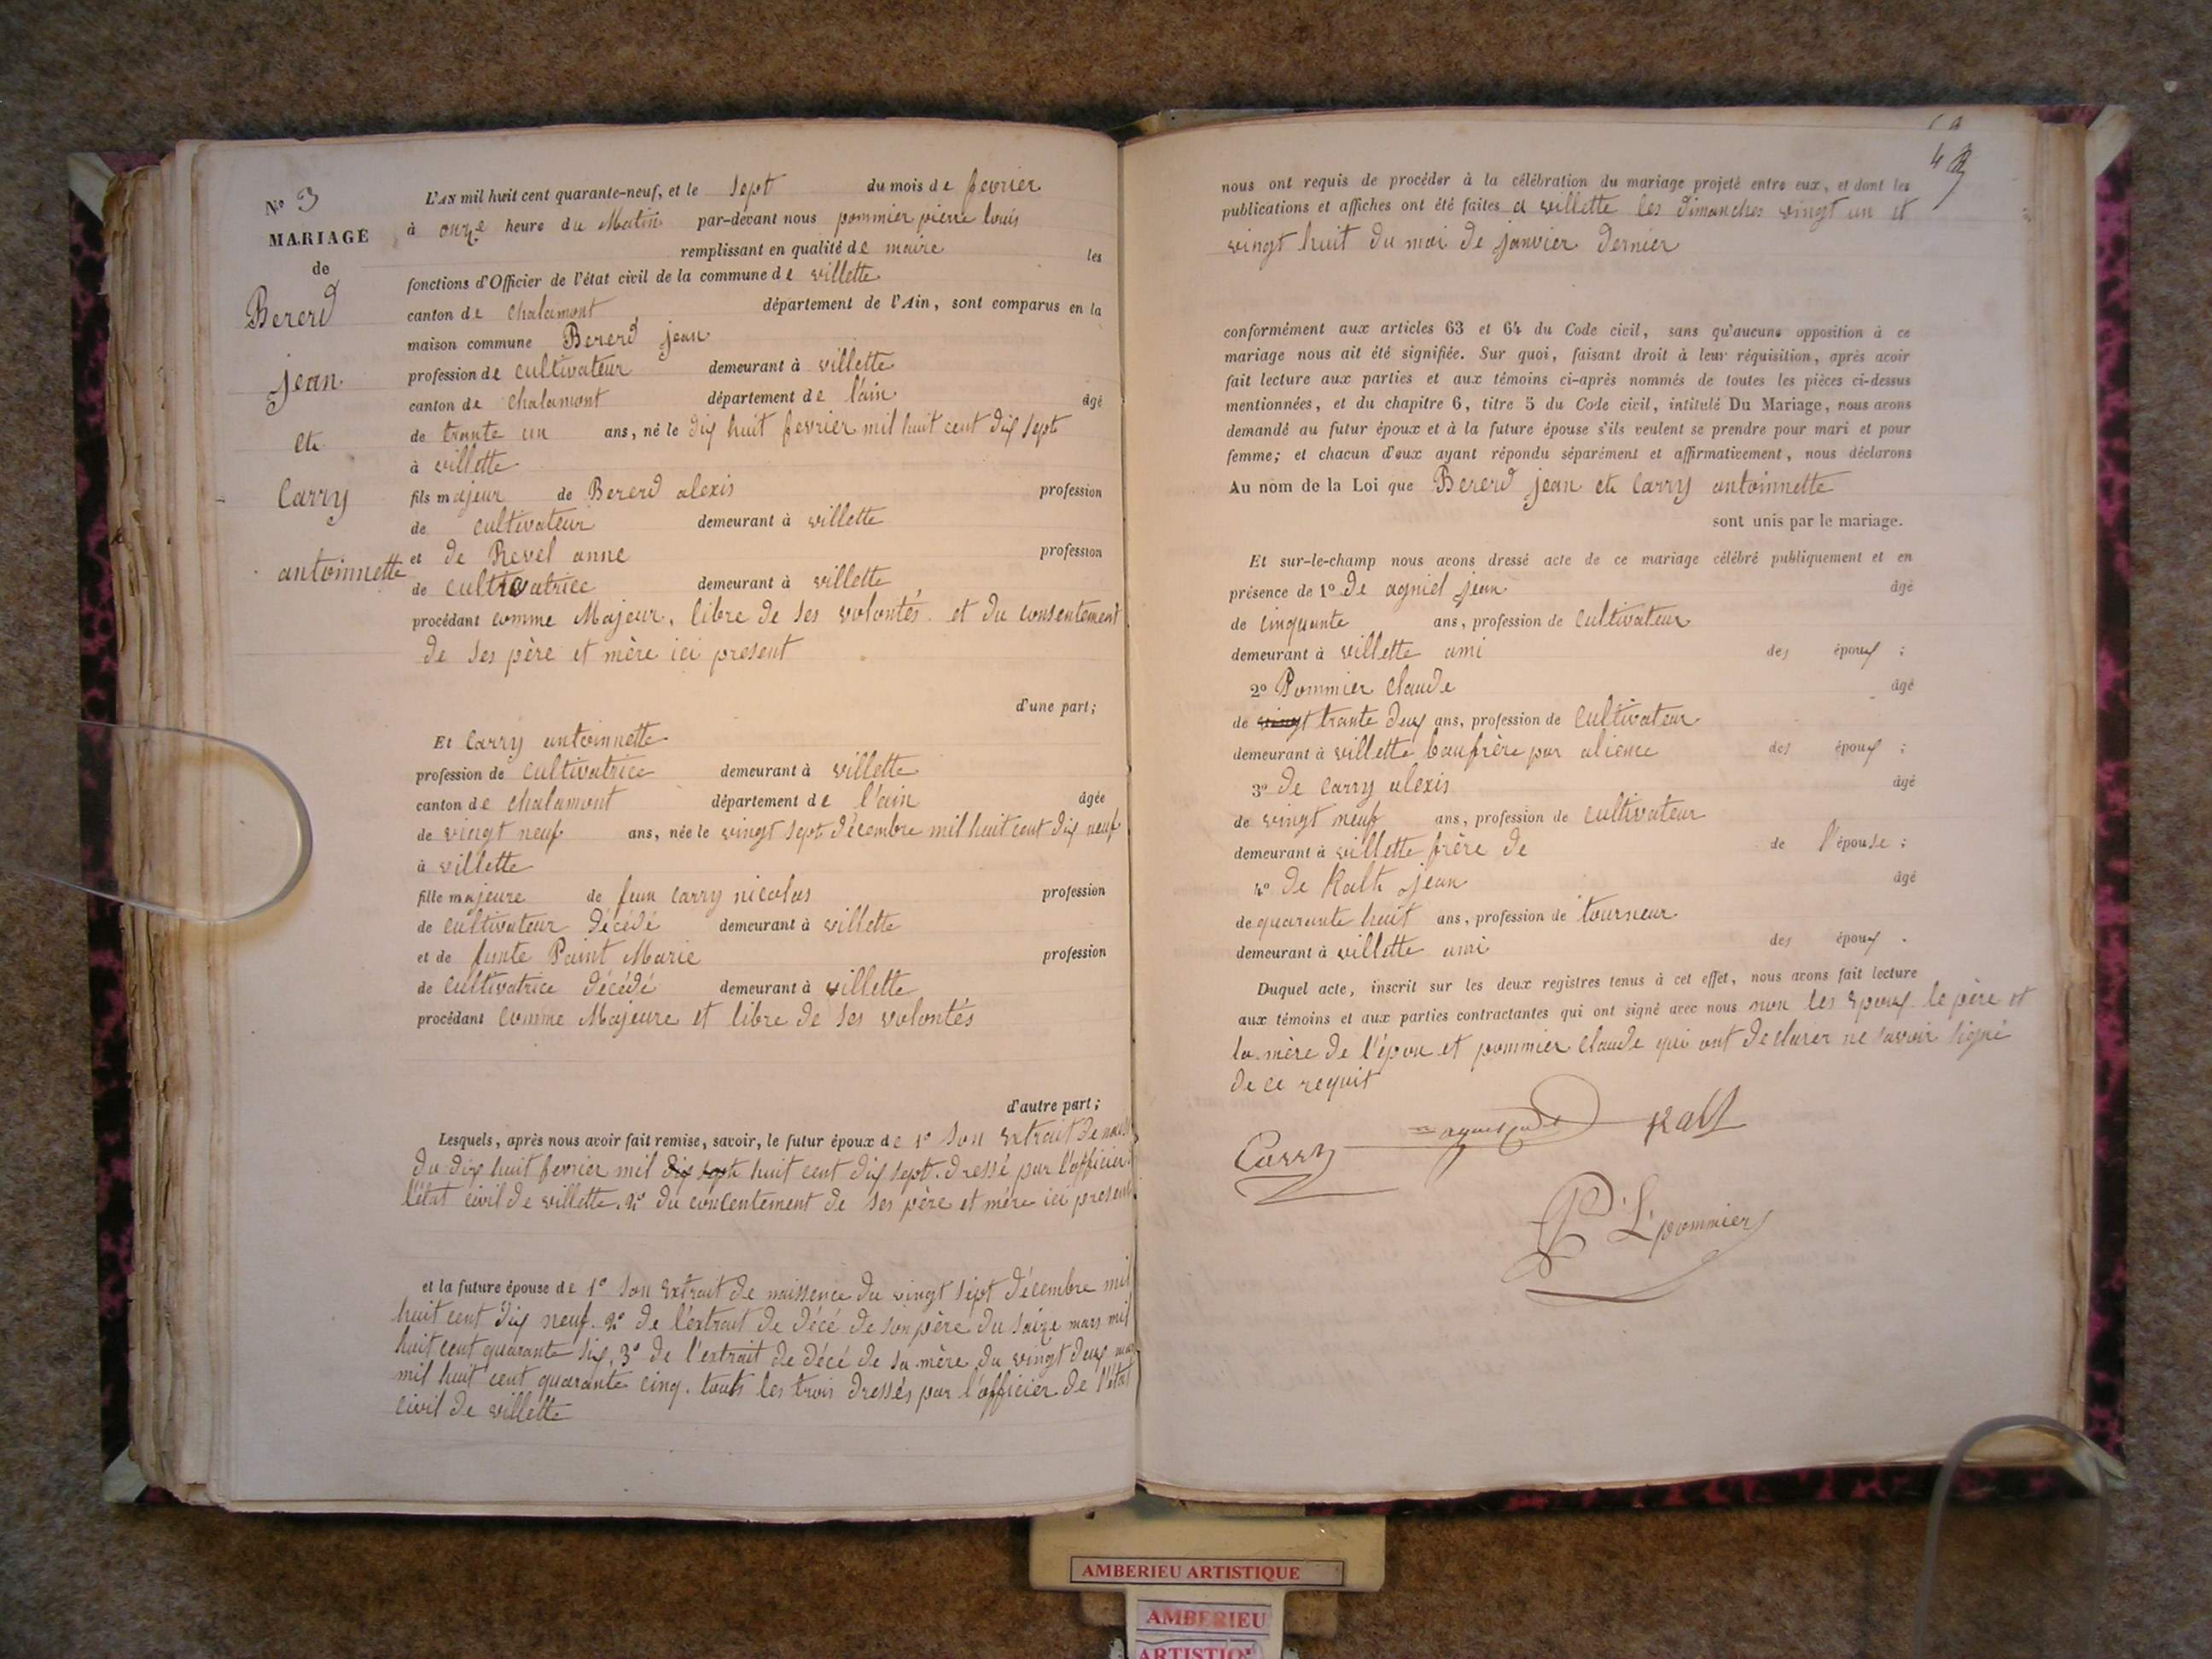 N° 3
MARIAGE
de
Bererd
jean
et
Carry
antoinnette
L'AN mil huit cent quarante-neuf, et le sept du mois de fevrier
à onze heure du Matin par-devant nous pommier pierre louis
remplissant en qualité de maire les
fonctions d'Officier de l'état civil de la commune de villette
canton de chalamont département de l'Ain, sont comparus en la
maison commune Bererd jean
profession de cultivateur demeurant à villette
canton de chalamont département de l'ain âgé
de trante un ans, né le dix huit fevrier mil huit cent dix sept
à villette
fils majeur de Bererd alexis profession
de cultivateur demeurant à villette
et de Revel anne profession
de cultivatrice demeurant à villette
procédant comme Majeur, libre de ses volontés et du consentement
de ses père et mère ici present
d'une part;
Et Carry antoinnette
profession de cultivatrice demeurant à villette
canton de chalamont département de l'ain âgée
de vingt neuf ans, née le vingt sept décembre mil huit cent dix neuf
à villette
fille majeure de feun Carry nicolas profession
de cultivateur décédé demeurant à villette
et de funte Paint Marie profession
de cultivatrice décédé demeurant à villette
procédant comme Majeure et libre de ses volontés
d'autre part;
Lesquels, après nous avoir fait remise, savoir, le futur époux de 1° son extrait de
du dix huit fevrier mil dix sept huit cent dix sept. dressé par l'officier
l'état civil de villette. 2° du concentement de ses père et mère ici present
et la future épouse de 1° son extrait de naissence du vingt sept décembre mil
huit cent dix neuf. 2° de l'extrait de décé de son père du saize mars mil
huit cent quarante six, 3° de l'extrait de décé de sa mère du vingt deux
mil huit cent quarante cinq. touts les trois dressés par l'officier de l'état
civil de villette
nous ont requis de procéder à la célébration du mariage projeté entre eux, et dont les
publications et affiches ont été faites a villette les dimanches vingt un et
vingt huit du moi de janvier dernier
conformément aux articles 63 et 64 du Code civil, sans qu'aucune opposition à ce
mariage nous ait été signifiée. Sur quoi, faisant droit à leur réquisition, après avoir
fait lecture aux parties et aux témoins ci-après nommés de toutes les pièces ci-dessus
mentionnées, et du chapitre 6, titre 5 du Code civil, intitulé Du Mariage, nous avons
demandé au futur époux et à la future épouse s'ils veulent se prendre pour mari et pour
femme; et chacun d'eux ayant répondu séparément et affirmativement, nous déclarons
Au nom de la Loi que Bererd jean et Carry antoinnette
sont unis par le mariage.
Et sur-le-champ nous avons dressé acte de ce mariage célébré publiquement et en
présence de 1° de agniel jean âgé
de cinquante ans, profession de cultivateur
demeurant à villette ami des époux ;
2° Pommier claude âgé
de vingt trante deux ans, profession de cultivateur
demeurant à villette baufrère par alience des époux ;
3° de Carry alexis âgé
de vingt neuf ans, profession de cultivateur
demeurant à villette frère de de l'épouse ;
4° de Kalt jean âgé
de quarante huit ans, profession de tourneur
demeurant à villette ami des époux .
Duquel acte, inscrit sur les deux registres tenus à cet effet, nous avons fait lecture
aux témoins et aux parties contractantes qui ont signé avec nous non les époux le père et
la mère de l'épou et pommier claude qui ont declarer ne savoir signé
de ce requit
Carry
Kalt
P L pommier
AMBERIEU ARTISTIQUE
AMBERIEU
ARTISTIQUE